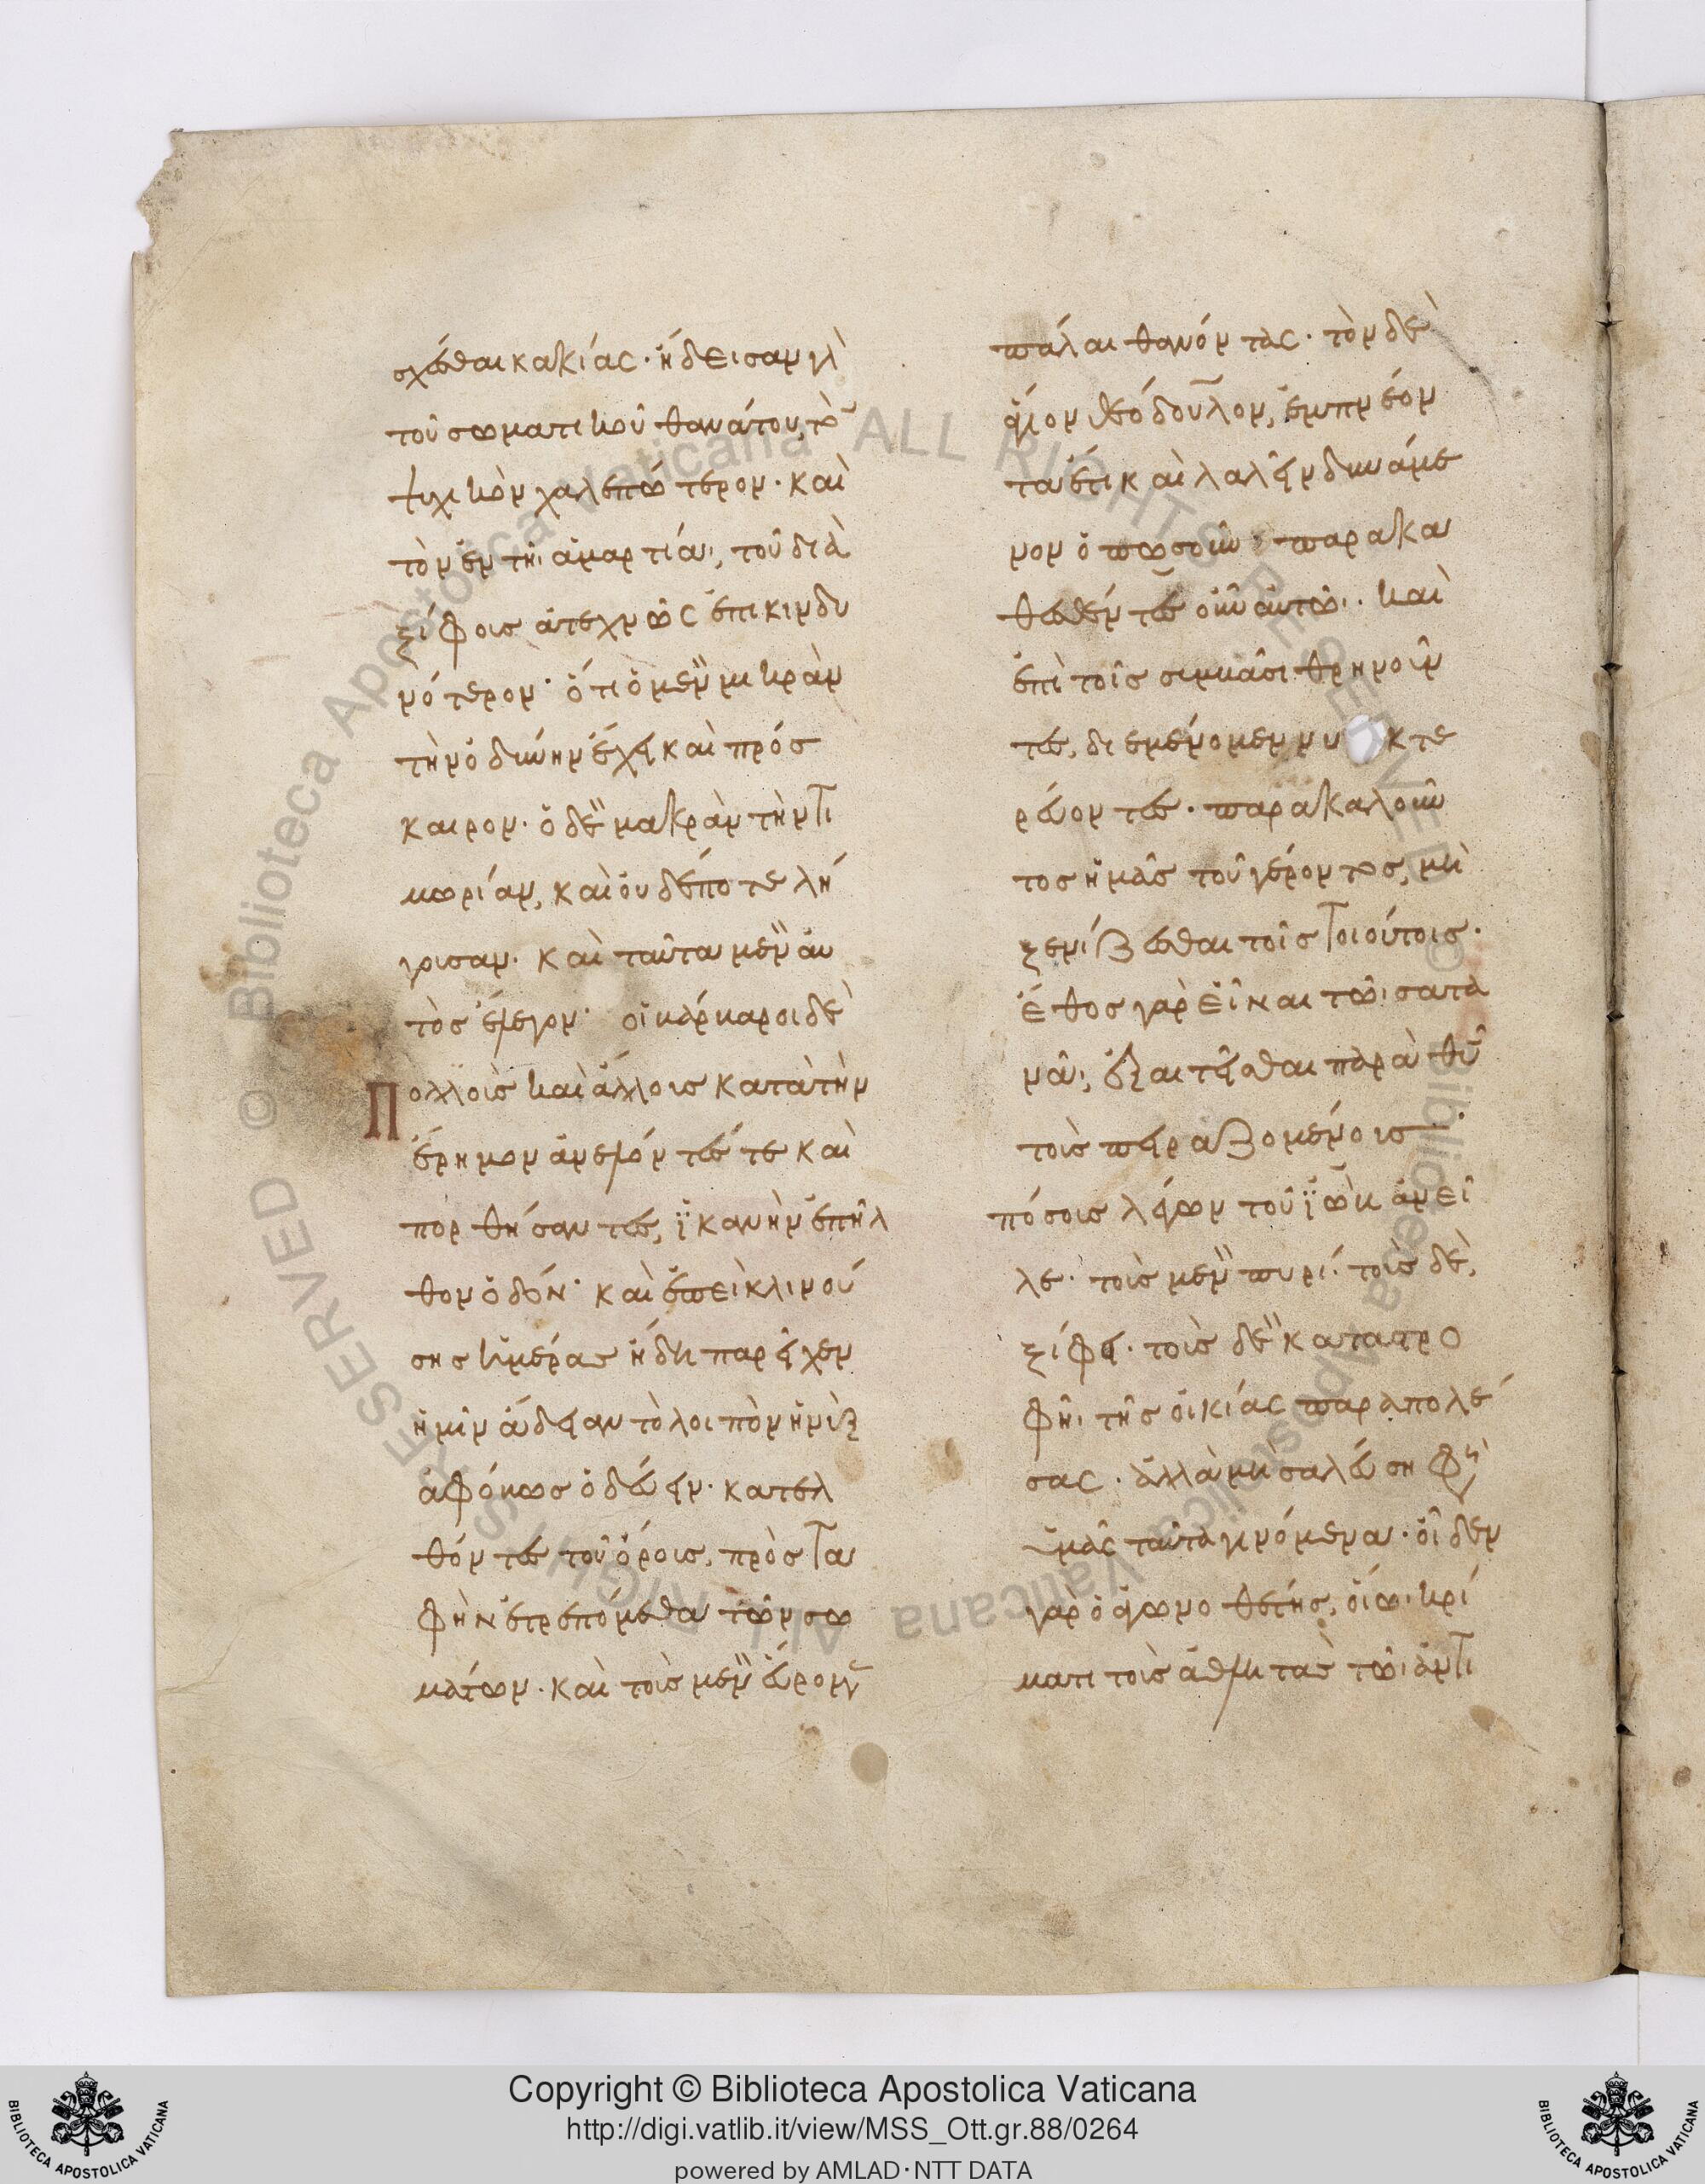 σχέσθαι κακίας· ἤδεισαν γὰρ
τοῦ σωματικοῦ θανάτου, τὸν
ψυχικὸν χαλεπώτερον· καὶ
τὸν ἐν τῆι ἁμαρτίαι, τοῦ διὰ
ξίφους ἀτεχνῶς ἐπικινδυ
νότερον· ὅτι ὁ μὲν μικρὰν
τὴν ὀδύνην ἔχει καὶ πρόσ
καιρον· ὁ δὲ μακρὰν τὴν τι
μωρίαν, καὶ οὐδέποτε λή
γουσαν· καὶ ταῦτα μὲν αὐ
τὸς ἔλεγον· οἱ βάρβαροι δὲ
Πολλοῖς καὶ ἄλλοις κατὰ τὴν
ἔρημον ἀνελόντες τε καὶ
πορθήσαντες, ἱκανὴν ἐπῆλ
θον ὁδόν· καὶ ἐπεὶ κλινού
σης ἡμέρας ἤδη παρεῖχεν
ἡμῖν ἄδειαν τὸ λοιπὸν ἡ νὺξ
ἀφόβως ὁδεύειν· κατελ
θόντες τοῦ ὄρους, πρὸς τα
φὴν ἐτρεπόμεθα τῶν σω
μάτων· καὶ τοὺς μὲν εὕρομεν
πάλαι θανόντας· τὸν δὲ
ἅγιον Θεόδουλον, ἐμπνέον
τα ἔτι καὶ λαλεῖν δυνάμε
νον ὁπωσοῦν· παρακα
θεσθέντες οὖν αὐτῶι· καὶ
ἐπὶ τοῖς συμβᾶσι θρηνοῦν
τες, διεμένομεν νυκτε
ρεύοντες· παρακαλοῦν
τος ἡμᾶς τοῦ γέροντος, μὴ
ξενίζεσθαι τοῖς τοιούτοις·
ἔθος γὰρ εἶναι τῶι σατα
νᾶι, ἐξαιτεῖσθαι παρὰ θυ
τοὺς πειραζομένους·
πόσους λέγων τοῦ ϊὼβ ἀνεῖ
λε· τοὺς μὲν πυρί· τοὺς δὲ,
ξίφει· τοὺς δὲ καταστρο
φῆι τῆς οἰκίας παραπολέ
σας· ἀλλὰ μὴ σαλεύση φη
ὑμᾶς ταῦτα γινόμενα· οἶδεν
γὰρ ὁ ἀγωνοθέτης, οἵωι κρί
ματι τοὺς ἀθλητὰς τῶι ἀντι
Copyright © Biblioteca Apostolica Vaticana
http://digi.vatlib.it/view/MSS_Ott.gr.88/0264
powered by AMLAD·NTT DATA
BIBLIOTECA APOSTOLICA VATICANA
BIBLIOTECA APOSTOLICA VATICANA